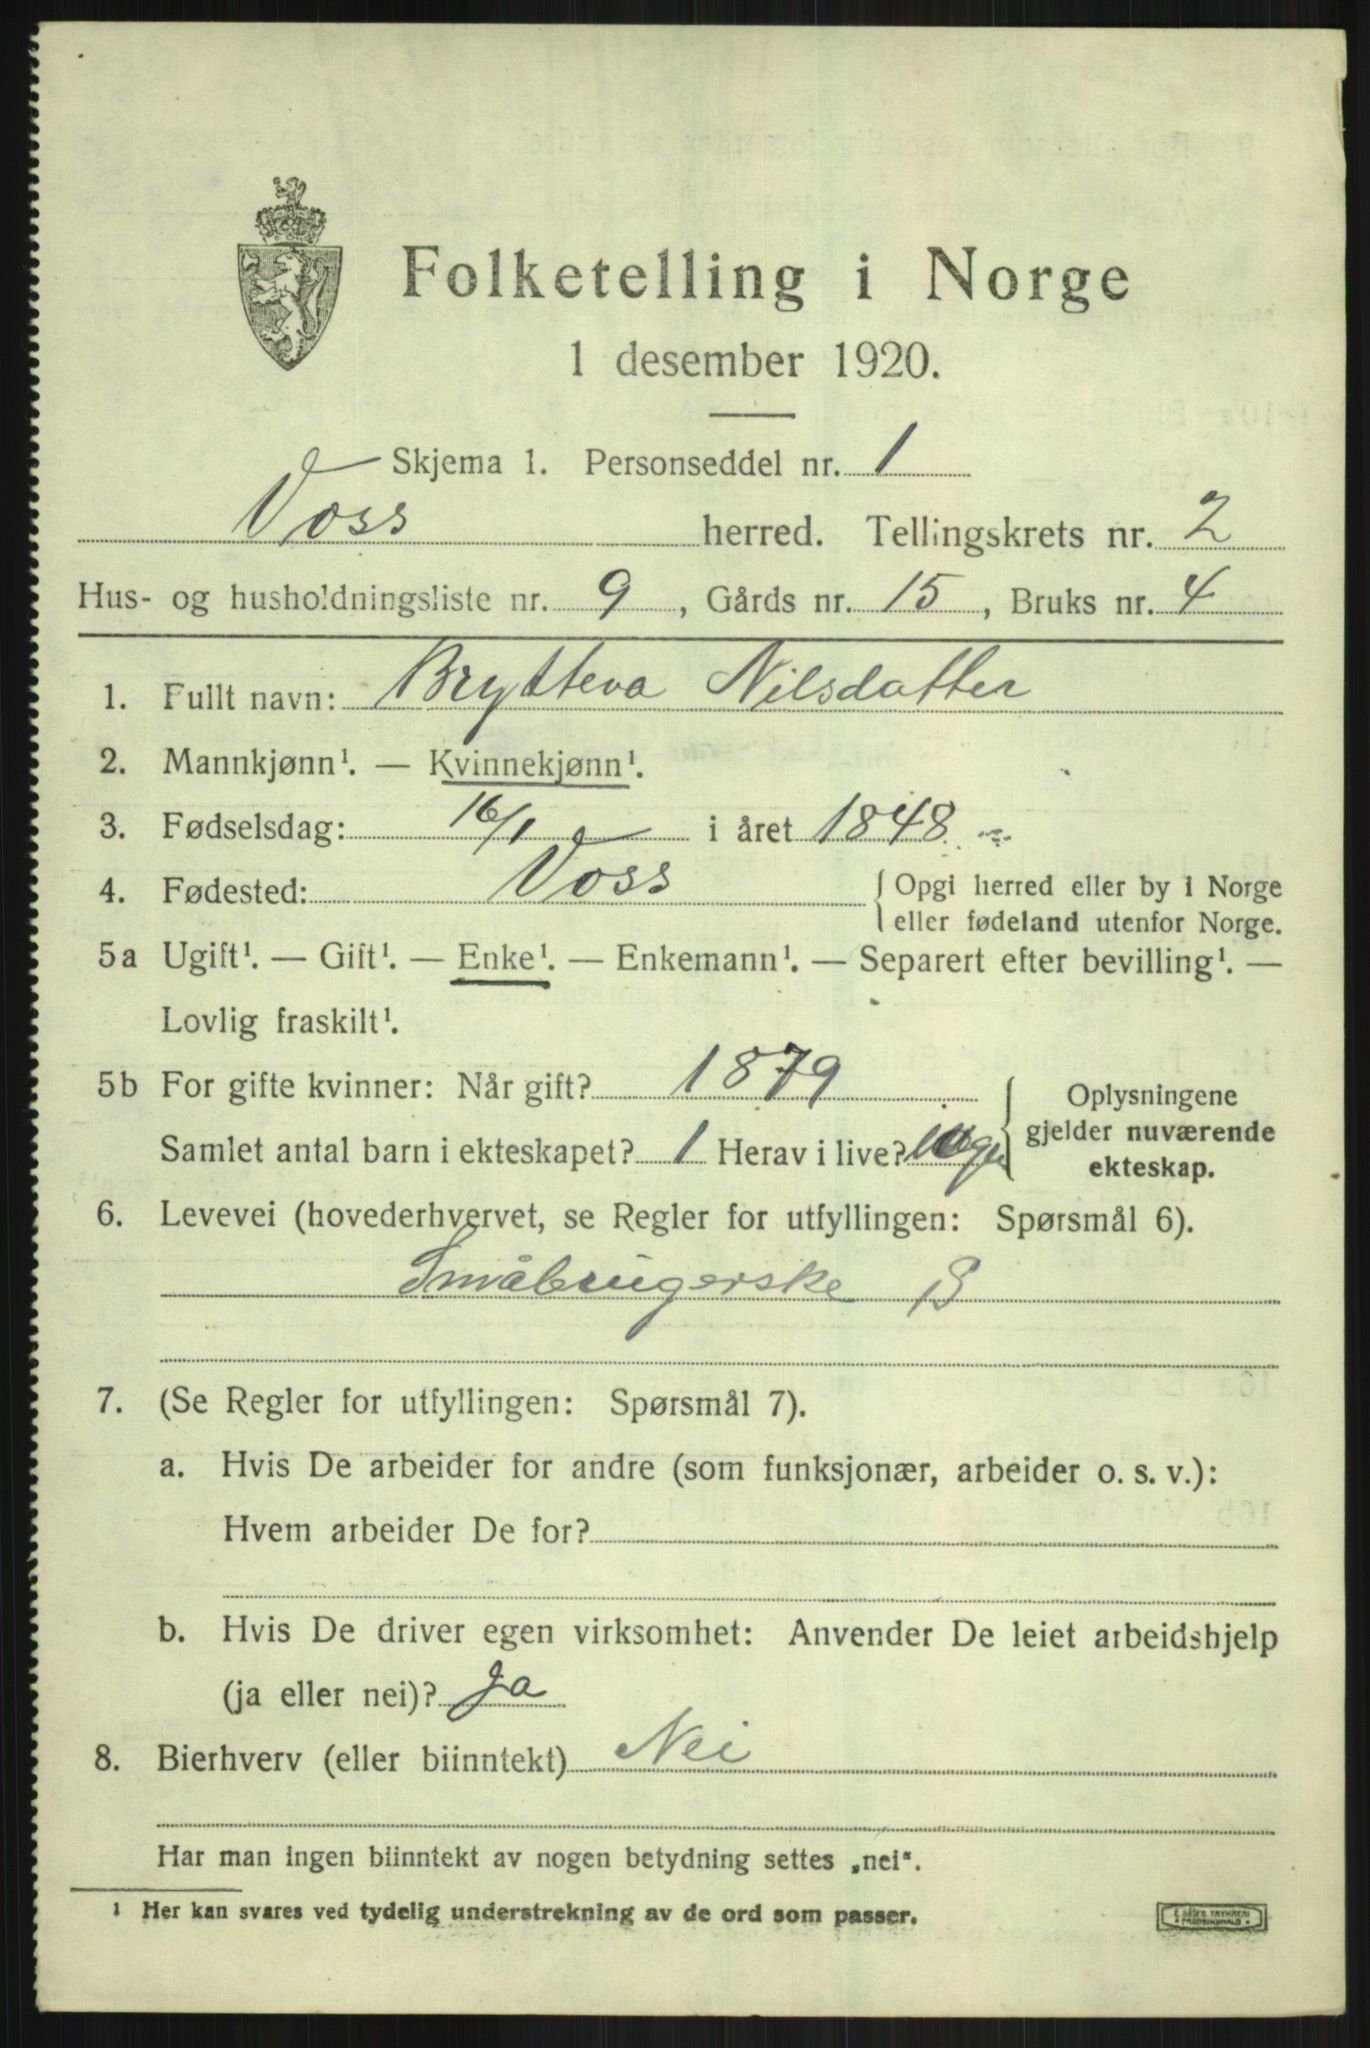 Folketelling i Norge
1 desember 1920.
Skjema 1. Personseddel nr. 1
Voss herred. Tellingskrets nr. 2
Hus- og husholdningsliste nr. 9, Gårds nr. 15, Bruks nr. 4
1. Fullt navn: Brytteva Nilsdatter
2. Mannkjønn¹. — Kvinnekjønn¹.
3. Fødselsdag: 16/1 i året 1848
4. Fødested: Voss {Opgi herred eller by i Norge
eller fødeland utenfor Norge.
5a Ugift¹. — Gift¹. — Enke¹. — Enkemann¹. — Separert efter bevilling¹. —
Lovlig fraskilt¹.
5b For gifte kvinner: Når gift? 1879
Samlet antal barn i ekteskapet? 1 Herav i live?
Oplysningene
gjelder nuværende
ekteskap.
6. Levevei (hovederhvervet, se Regler for utfyllingen: Spørsmål 6).
Småbrugerske
7. (Se Regler for utfyllingen: Spørsmål 7).
a. Hvis De arbeider for andre (som funksjonær, arbeider o. s. v.):
Hvem arbeider De for?
b. Hvis De driver egen virksomhet: Anvender De leiet arbeidshjelp
(ja eller nei)? Ja
8. Bierhverv (eller biinntekt) Nei
Har man ingen biinntekt av nogen betydning settes „nei".
¹ Her kan svares ved tydelig understrekning av de ord som passer.